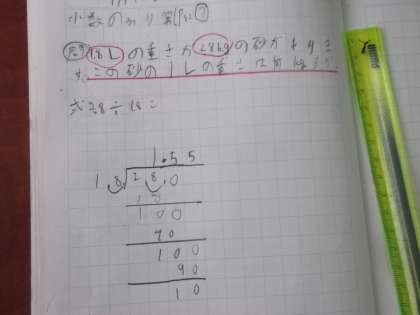 小数のわり算 ⑦
1.8Lの重さが2.8kgの砂があります。
この砂の1Lの重さは何kgですか。
式 2.8÷1.8=
1.55
18 28.0
18
100
90
100
90
10